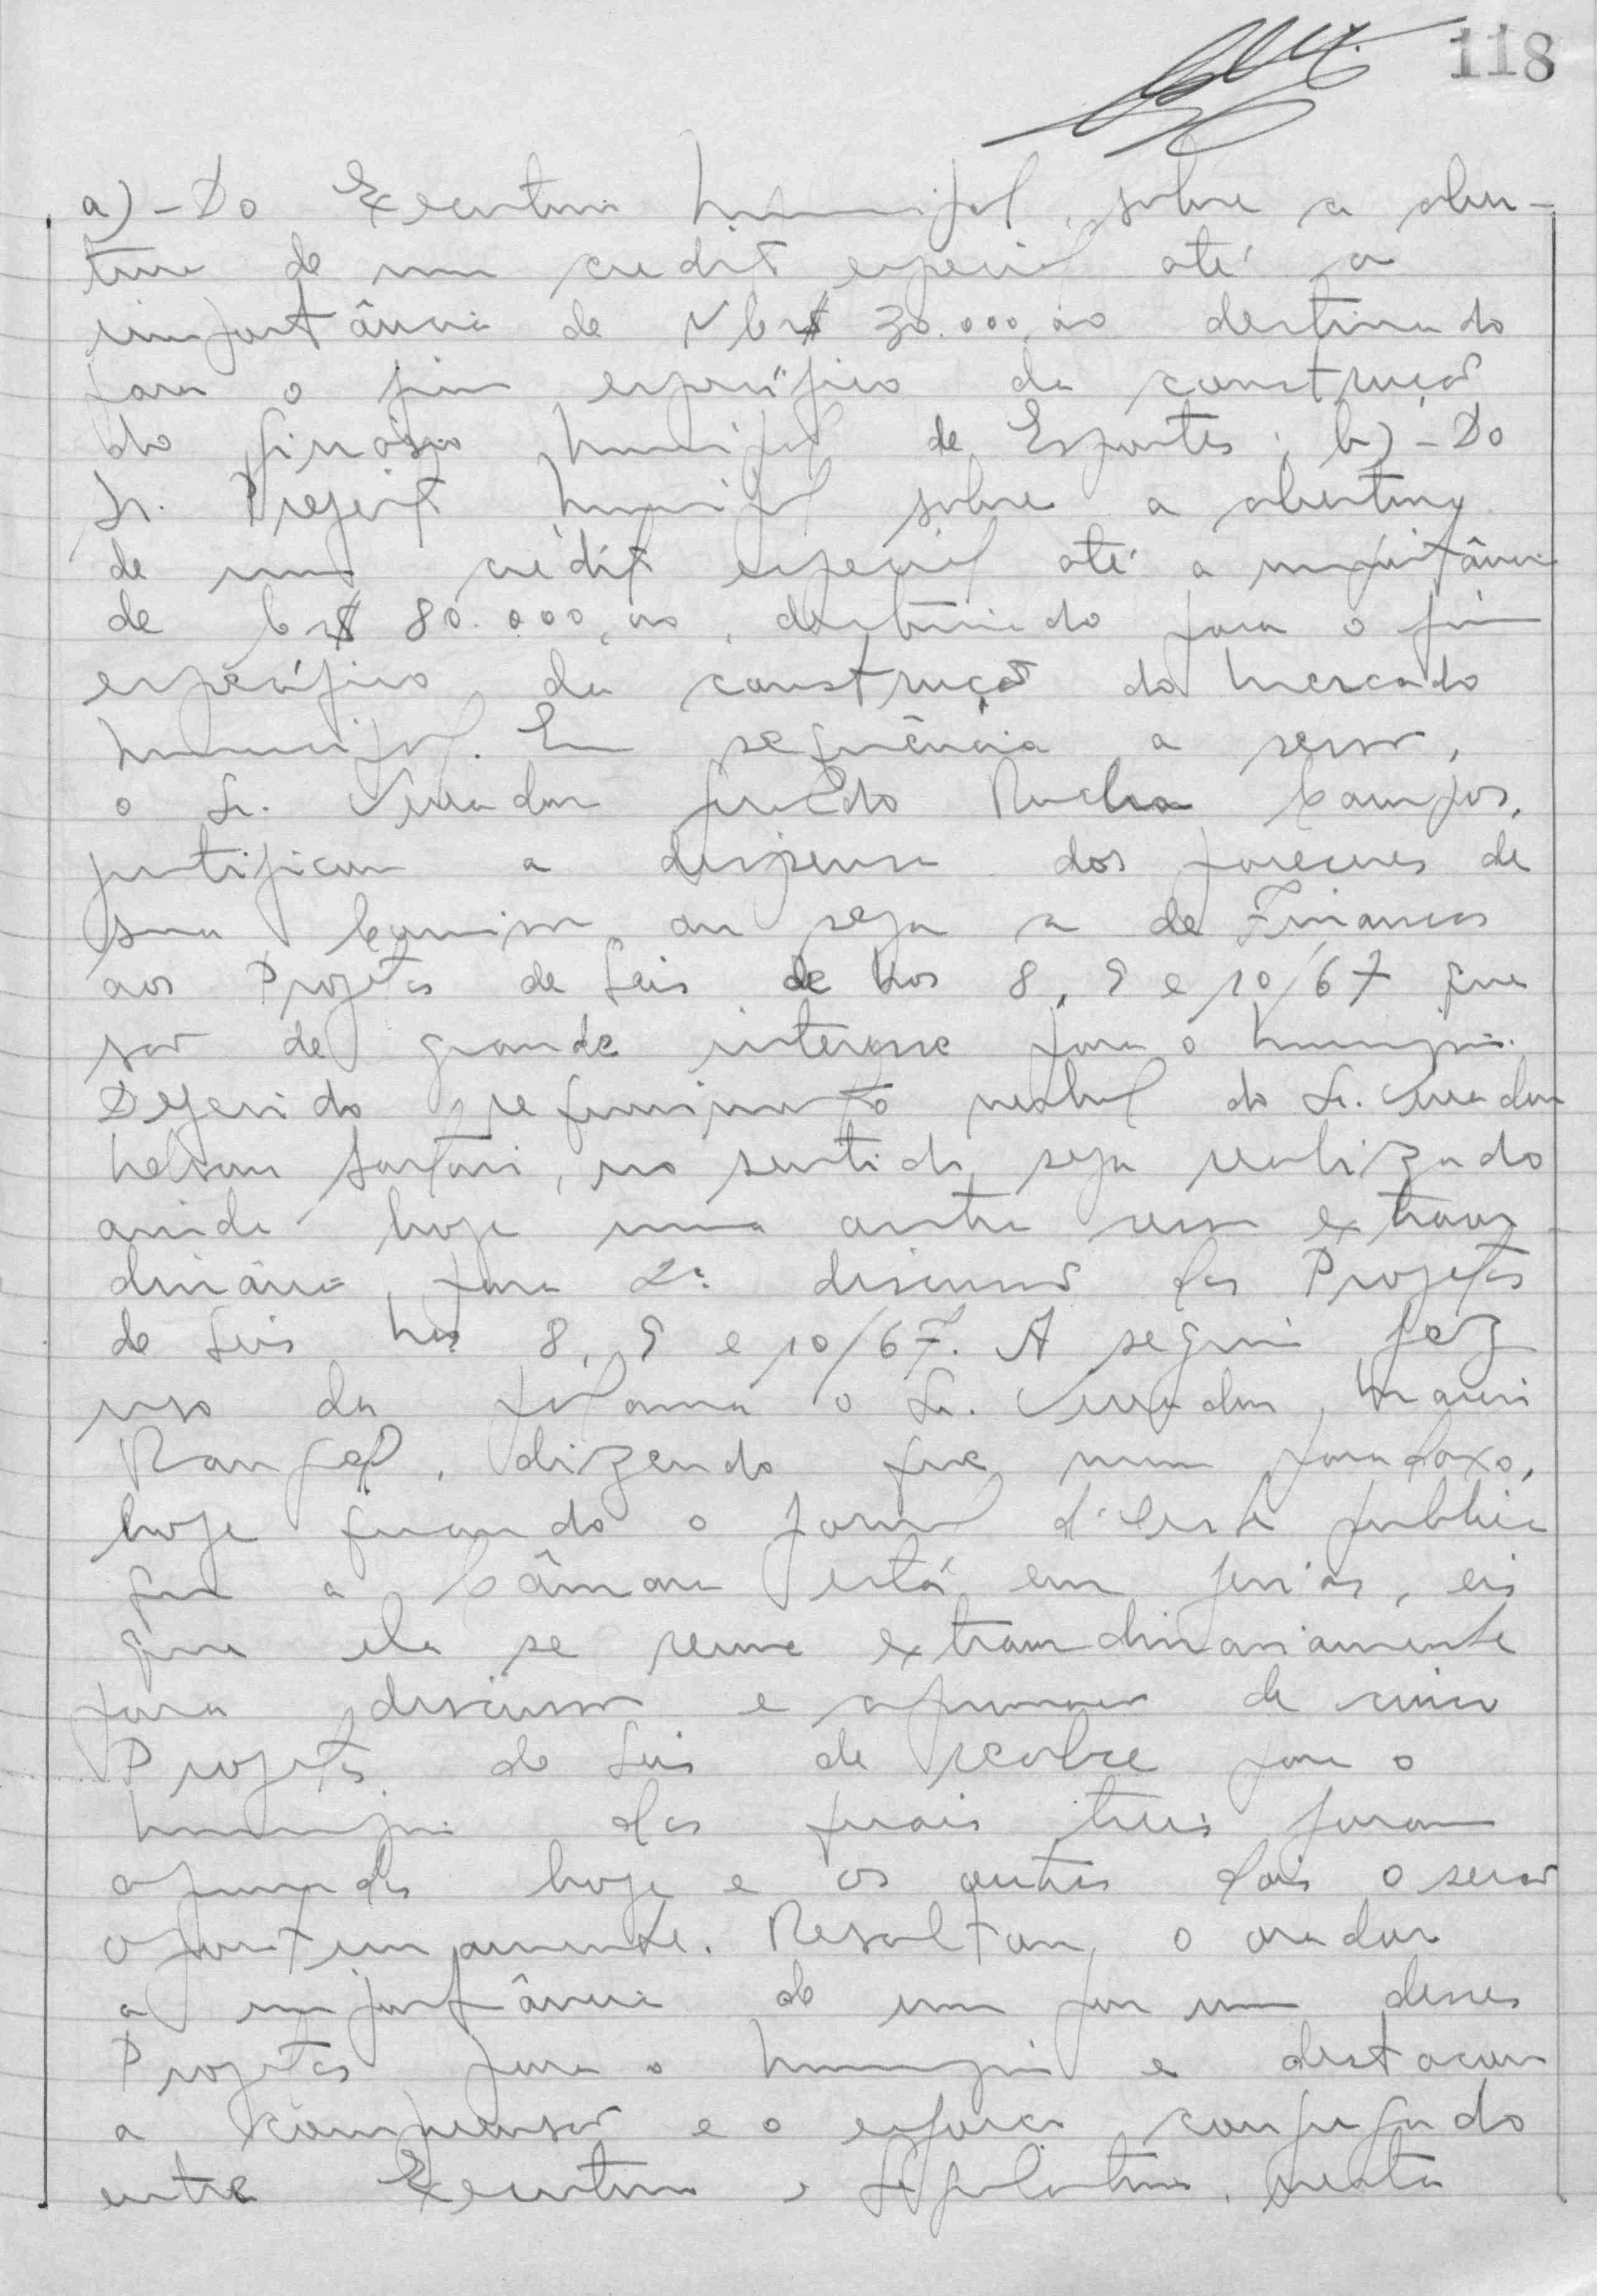 118
a) - Do Executivo Municipal, sobre a aber-
tura de um credito especial até a
importância de NCr$ 30.000,00 destinado
para o fim específico da construção
do Ginásio Municipal de Esportes; b) - Do
Sr. Prefeito Municipal sobre a abertura
de um crédito especial até a importância
de Cr$ 80.000,00, destinado para o fim
específico da construção do Mercado
Municipal. Em sequência a sessão,
o Sr. Vereador Rocha Campos,
justificou a dispensa dos pareceres de
sua Comissão ou seja a de Finanças
aos Projetos de Leis de Nos 8, 9 e 10/67 que
são de grande interesse para o Município.
Deferido requerimento verbal do Sr. Vereador
Nelson Sartori, no sentido seja realizado
ainda hoje uma outra sessão extraor-
dinária, para 2ª discussão dos Projetos
de Leis Nos 8, 9 e 10/67. A seguir fez
uso da palavra o Sr. Vereador Mauri
Rangel, dizendo que num paradoxo,
hoje quando o jornal d'Oeste publica
que a Câmara está em ferias, eis
que ela se reune extraordinariamente
para discussão e aprovação de cinco
Projetos de Leis de realce para o
Município dos quais três foram
aprovados hoje e os outros dois o serão
oportunamente. Resaltou, o orador
a importância de um por um desses
Projetos para o Município e destacou
a compreensão e o esforço conjugado
entre Executivo e Legislativo, nesta